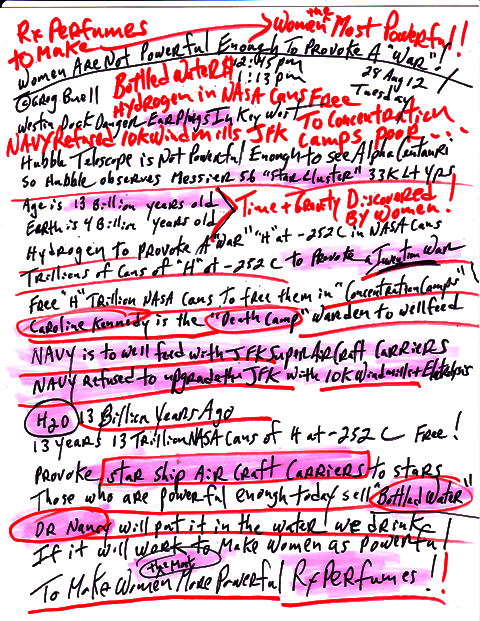 Rx Perfumes
to Make
the
Women Most Powerful!!
Women Are Not Powerful Enough To Provoke A "War"!
Bottled Water $
12:45pm
1:13pm
©Greg Buell
28 Aug 12
Tuesday
Hydrogen in NASA Cans Free
Westin Dock Danger Ear Plugs In Key West
To Concentration
Camps Poor - - -
NAVY Refused 10K Windmills JFK
Hubble Telscope is Not Powerful Enough to see Alpha Centauris
So Hubble observes Messier 56 "Star Cluster" 33K Lt yrs
Age is 13 Billion years old
Earth is 4 Billion years old
Time + Gravity Discovered
By Women!
Hydrogen to Provoke A "War" "H" at -252 C in NASA Cans
Trillions of Cans of "H" at -252 C to Provoke a Invention War
Free "H" Trillion NASA Cans To free them in "Concentration Camps"
Caroline Kennedy is the "Death Camp" Warden to well feed
NAVY is to well feed with JFK Super Air Craft Carriers
NAVY Refused to upgrade the JFK with 10K Windmills +
H2O 13 Billion Years Ago
13 years 13 Trillion NASA Cans of H at -252 C Free!
Provoke Star Ship Air Craft Carriers to stars
Those who are powerful enough today sell "Bottled Water"
DR Nancy will put it in the water we drink
If it will work to Make Women as Powerful
the Most
To Make Women More Powerful Rx Perfumes!!